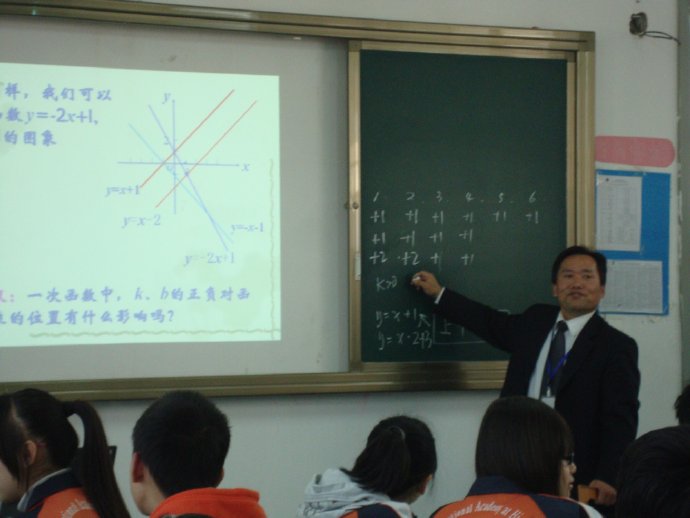 样，我们可以
数y=-2x+1、
的图象
y
2
x
y=x+1
y=x-2
y=-x-1
y=-2x+1
：一次函数中，k、b的正负对函
的位置有什么影响吗？
1. 2. 3. 4. 5. 6
+1 +1 +1 +1 +1 +1
+1 +1 +1 +1
+2 +2 +1 +1
K>0
y=x+1
y=x-2